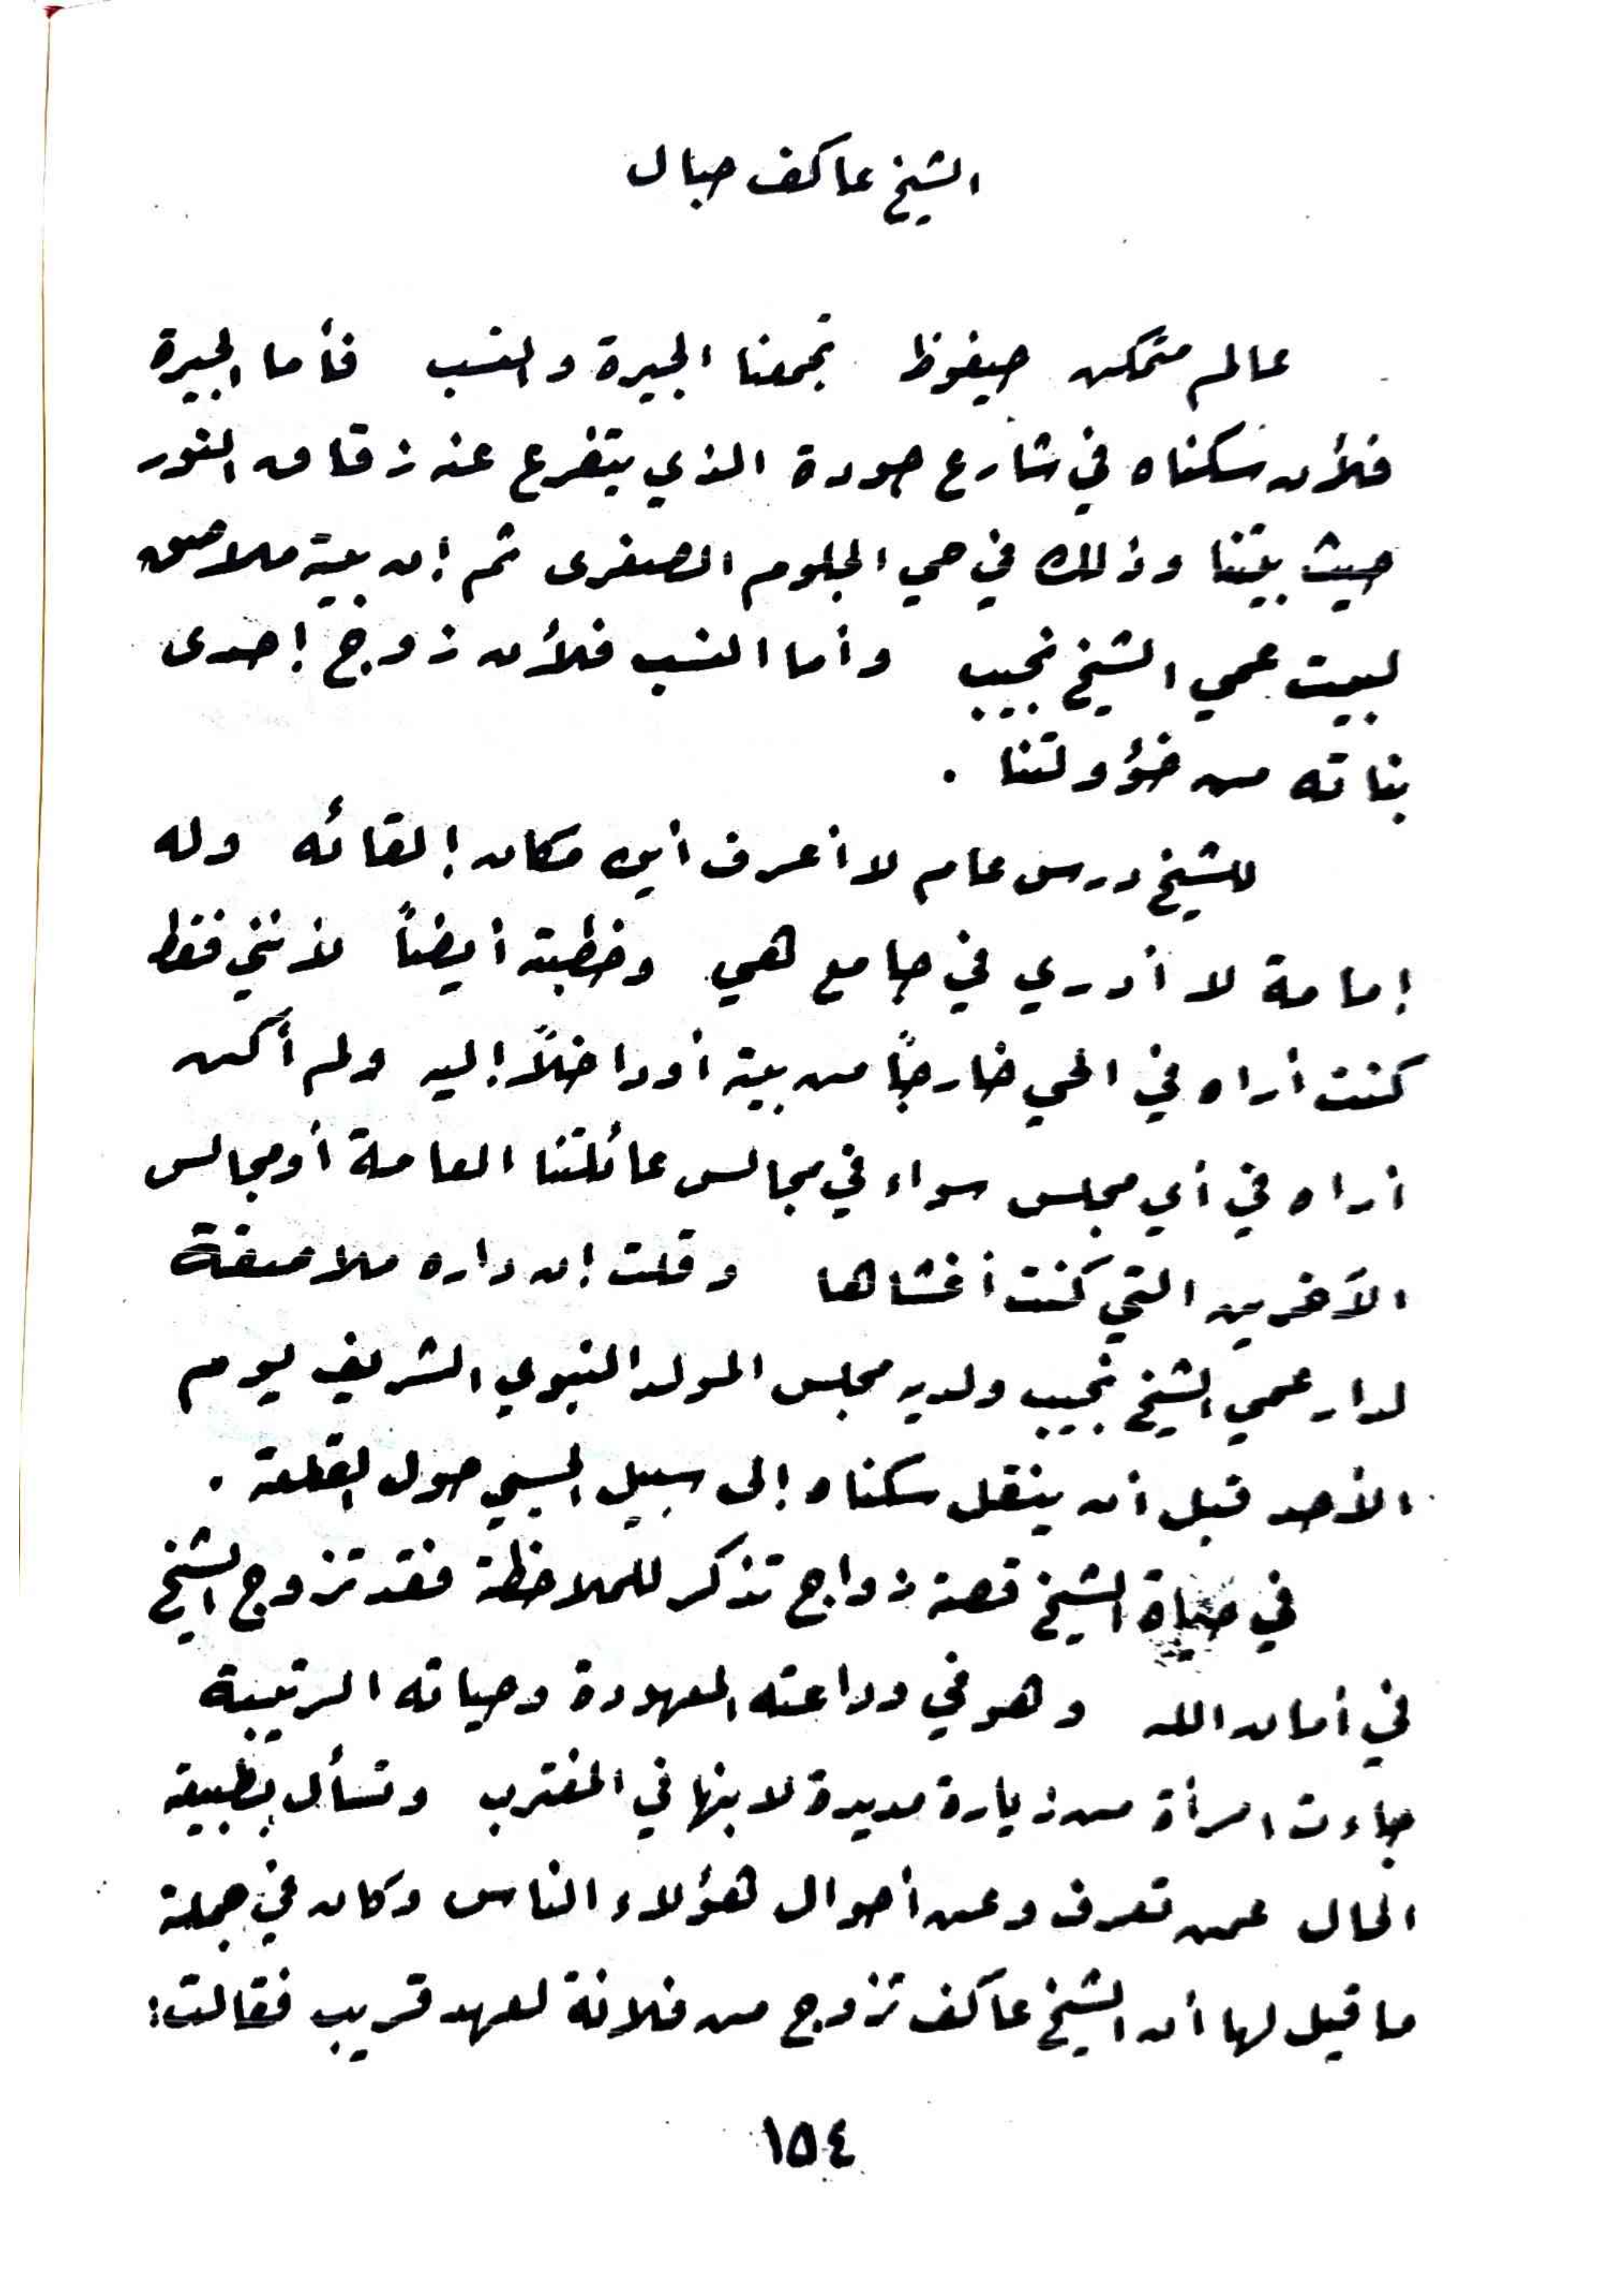 الشيخ عاكف حبال
عالم متمكن حيفوظ تجمعنا الجيرة والنسب فأما الجيرة
فلأن سكناه في شارع جودة الذي يتفرع عنه زقاق النور
حيث بيتنا وذلك في حي الجلوم الصغرى ثم إن بيته ملاصق
لبيت عمي الشيخ نجيب وأما النسب فلأن زوج إحدى
بناته من خؤولتنا .
للشيخ درس عام لا أعرف أين مكان إلقائه وله
إمامة لا أدري في جامع هي وخطبته أيضاً لأنني فقط
كنت أراه في الحي خارجاً من بيته أو داخلاً إليه ولم أكن
أراه في أي مجلس سواء في مجالس عائلتنا العامة أو مجالس
الآخرين التي كنت أغشاها وقلت إن داره ملاصقة
لدار عمي الشيخ نجيب ولديه مجلس المولد النبوي الشريف يوم
الأحد قبل أن ينقل سكناه إلى سبيل الجبي حول القلعة .
في حياة الشيخ قصة زواج تذكر للملاحظة فقد تزوج الشيخ
في أمان الله وهو في وداعته المعهودة وحياته الرتيبة
جاءت امرأة من زيارة مديدة لابنها في المغترب وتسأل بطبيعة
الحال عمن تعرف وعن أحوال هؤلاء الناس وكان في جملة
ما قيل لها أن الشيخ عاكف تزوج من فلانة لعهد قريب فقالت:
١٥٤